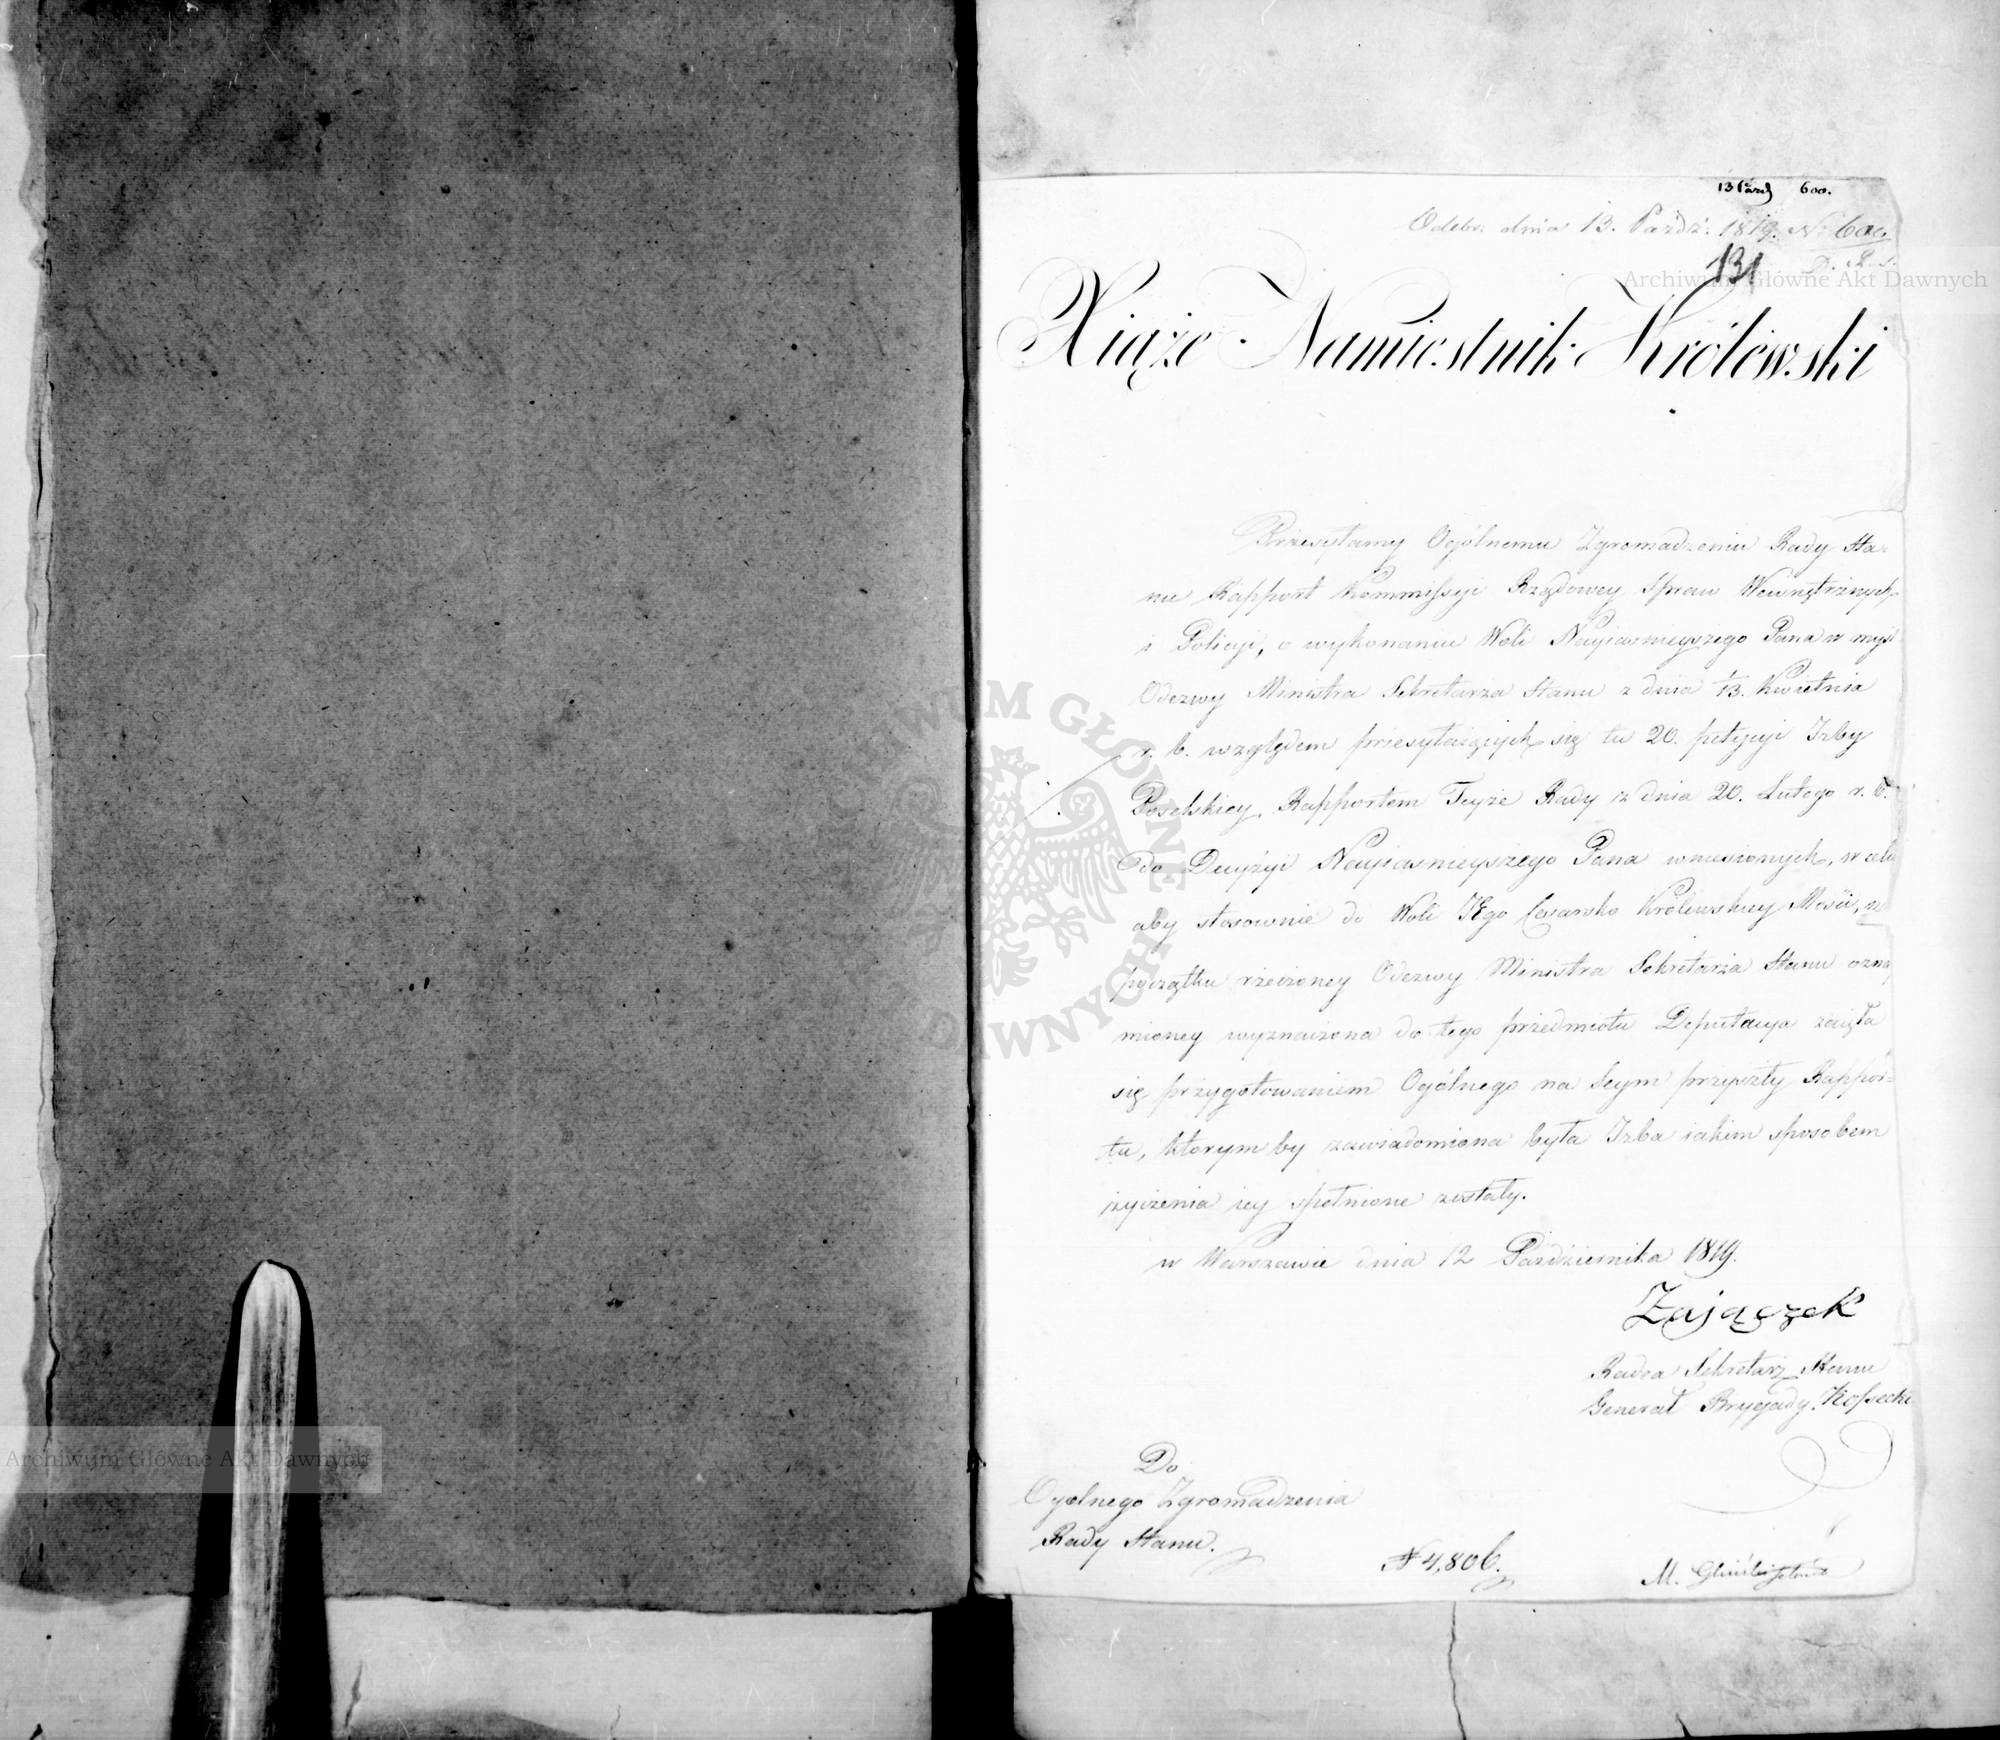 13 Paźd 600.
Odebr. dnia 13. Paźdz. 1819. N. 600
D. R. S.
131
Archiwum Główne Akt Dawnych
Xiąże Namiestnik Królewski
Przesyłamy Ogólnemu Zgromadzeniu Rady Sta-
nu Rapport Kommissyi Rządowey Spraw Wewnętrznych
i Policyi, o wykonaniu Woli Nayiasnieyszego Pana w myśl
Odezwy Ministra Sekretarza Stanu z dnia 1/13. Kwietnia
r. b. względem przesyłaiących się tu 20. petycyi Izby
Poselskiey, Rapportem Teyże Rady z dnia 20. Lutego r. b.
do Decyzyi Nayiasnieyszego Pana wniesionych, w celu
aby stosownie do Woli JEgo Cesarsko Królewskiey Mości, na
początku rzeczoney Odezwy Ministra Sekretarza Stanu ozna
mioney wyznaczona do tego przedmiotu Deputacya zaięła
się przygotowaniem Ogólnego na Seym przyszły Rappor-
tu, którym by zawiadomiona była Izba iakim sposobem
życzenia iey spełnione zostały.
w Warszawie dnia 12 Października 1819.
Zajączek
Radca Sekretarz Stanu
Generał Brygady. Kossecki
Do
Ogolnego Zgromadzenia
Rady Stanu.
N 4,806.
M.
ARCHIWUM GŁÓWNE AKT DAWNYCH
Archiwum Główne Akt Dawnych